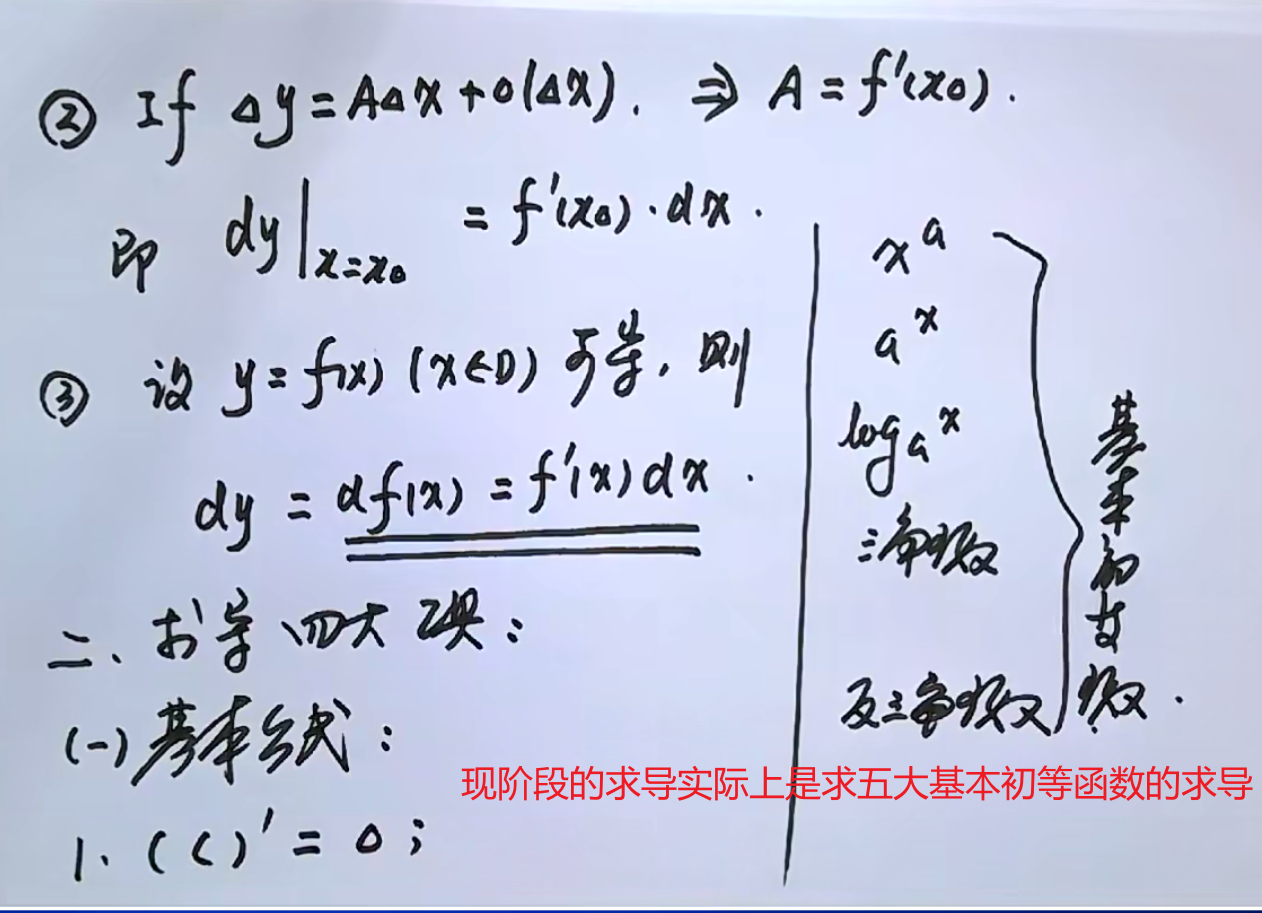 ② If Δy=AΔx+o(Δx). ⇒ A=f'(x₀).
即 dy|ₓ₌ₓ₀ = f'(x₀)·dx.
③ 设 y=f(x) (x∈D) 可导,则
dy = df(x) = f'(x)dx.
二、求导四大工具:
(一)基本公式:
1. (C)'=0;
xᵃ
aˣ
logₐx
三角函数
反三角函数
基本初等函数.
现阶段的求导实际上是求五大基本初等函数的求导